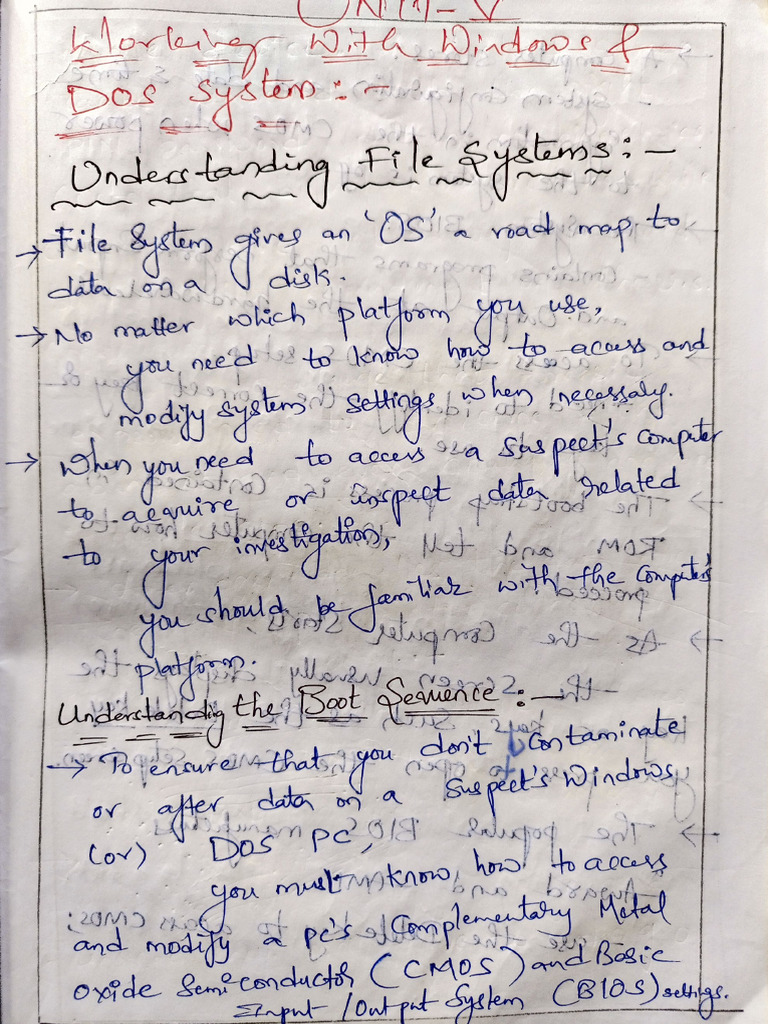 UNIT-V
Working with Windows &
DOS system:-
Understanding File Systems:-
→ File System gives an 'OS' a road map to
data on a disk.
→ No matter which platform you use,
you need to know how to access and
modify system settings when necessary.
→ When you need to access a suspect's computer
to acquire or inspect data related
to your investigation,
you should be familiar with the computer's
platform.
Understandig the Boot Sequence:-
→ To ensure that you don't contaminate
or after data on a suspect's Windows
(or) DOS PC,
you must know how to access
and modify a pc's Complementary Metal
oxide Semiconductor (CMOS) and Basic
Input /Output System (BIOS) settings.